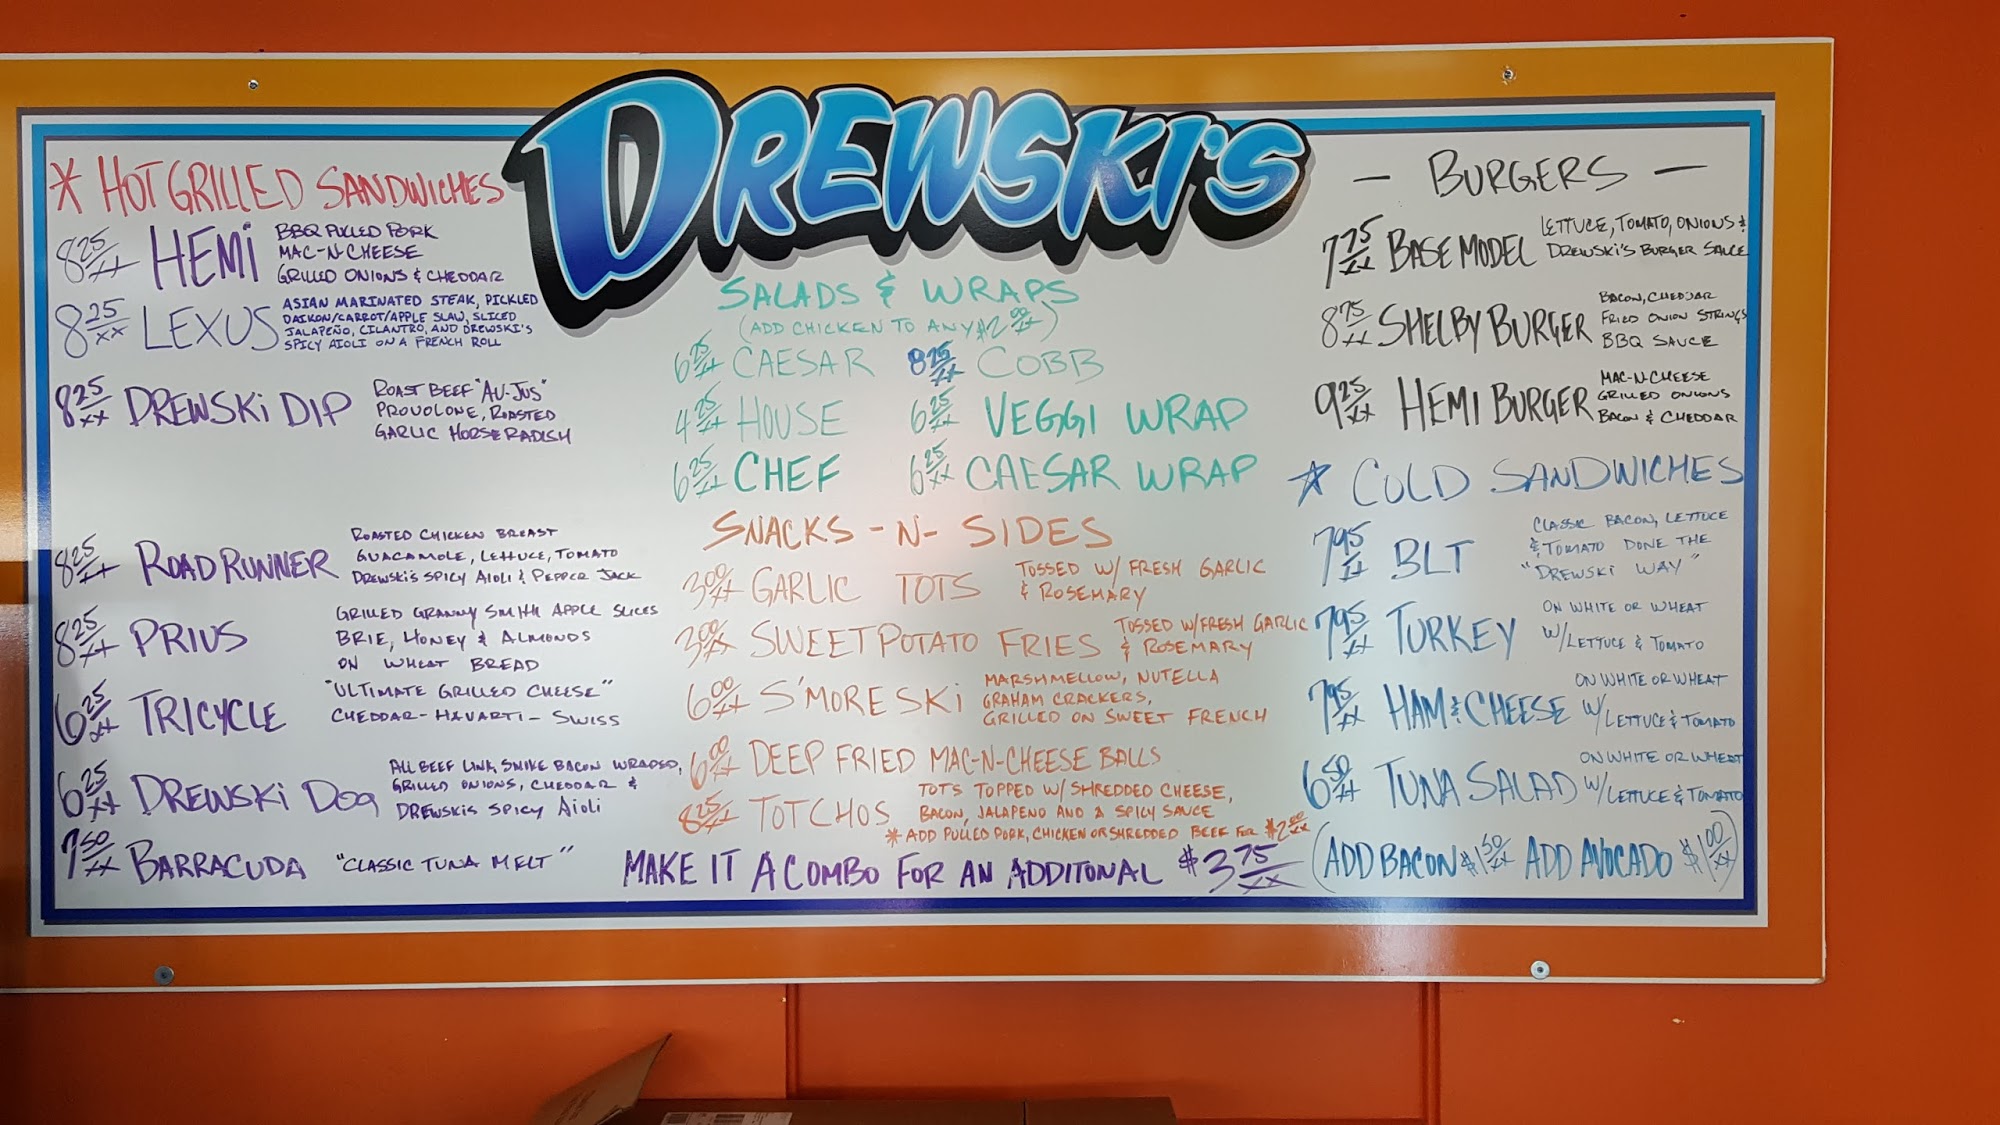 DREWSKI'S
* HOT GRILLED SANDWICHES
8 25/xx HEMI
BBQ PULLED PORK
MAC-N-CHEESE
GRILLED ONIONS & CHEDDAR
8 25/xx LEXUS
ASIAN MARINATED STEAK, PICKLED
DAIKON/CARROT/APPLE SLAW, SLICED
JALAPEÑO, CILANTRO, AND DREWSKI'S
SPICY AIOLI ON A FRENCH ROLL
8 25/xx DREWSKI DIP
ROAST BEEF "AU-JUS"
PROVOLONE, ROASTED
GARLIC HORSERADISH
8 25/xx ROAD RUNNER
ROASTED CHICKEN BREAST
GUACAMOLE, LETTUCE, TOMATO
DREWSKI'S SPICY AIOLI & PEPPER JACK
8 25/xx PRIUS
GRILLED GRANNY SMITH APPLE SLICES
BRIE, HONEY & ALMONDS
ON WHEAT BREAD
6 25/xx TRICYCLE
"ULTIMATE GRILLED CHEESE"
CHEDDAR-HAVARTI-SWISS
6 25/xx DREWSKI DOG
ALL BEEF LINK, SMKE BACON WRAPED,
GRILLED ONIONS, CHEDDAR &
DREWSKIS SPICY AIOLI
7 50/xx BARRACUDA "CLASSIC TUNA MELT"
SALADS & WRAPS
(ADD CHICKEN TO ANY $2 00/xx)
6 25/xx CAESAR 8 25/xx COBB
4 25/xx HOUSE 6 25/xx VEGGI WRAP
6 25/xx CHEF 6 25/xx CAESAR WRAP
SNACKS -N- SIDES
3 00/xx GARLIC TOTS
TOSSED W/ FRESH GARLIC
& ROSEMARY
3 00/xx SWEET POTATO FRIES
TOSSED W/FRESH GARLIC
& ROSEMARY
6 00/xx S'MORESKI
MARSHMELLOW, NUTELLA
GRAHAM CRACKERS,
GRILLED ON SWEET FRENCH
6 00/xx DEEP FRIED MAC-N-CHEESE BALLS
8 25/xx TOTCHOS
TOTS TOPPED W/SHREDDED CHEESE,
BACON, JALAPENO AND A SPICY SAUCE
* ADD PULLED PORK, CHICKEN OR SHREDDED BEEF FOR $2 00/xx
MAKE IT A COMBO FOR AN ADDITONAL $3 75/xx
- BURGERS -
7 75/xx BASE MODEL
LETTUCE, TOMATO, ONIONS &
DREWSKI'S BURGER SAUCE
8 75/xx SHELBY BURGER
BACON, CHEDDAR
FRIED ONION STRINGS
BBQ SAUCE
9 25/xx HEMI BURGER
MAC-N-CHEESE
GRILLED ONIONS
BACON & CHEDDAR
* COLD SANDWICHES
7 95/xx BLT
CLASSIC BACON, LETTUCE
& TOMATO DONE THE
"DREWSKI WAY"
7 95/xx TURKEY
ON WHITE OR WHEAT
W/LETTUCE & TOMATO
7 95/xx HAM & CHEESE
ON WHITE OR WHEAT
W/LETTUCE & TOMATO
6 50/xx TUNA SALAD
ON WHITE OR WHEAT
W/LETTUCE & TOMATO
(ADD BACON $1 50/xx ADD AVOCADO $1 00/xx)